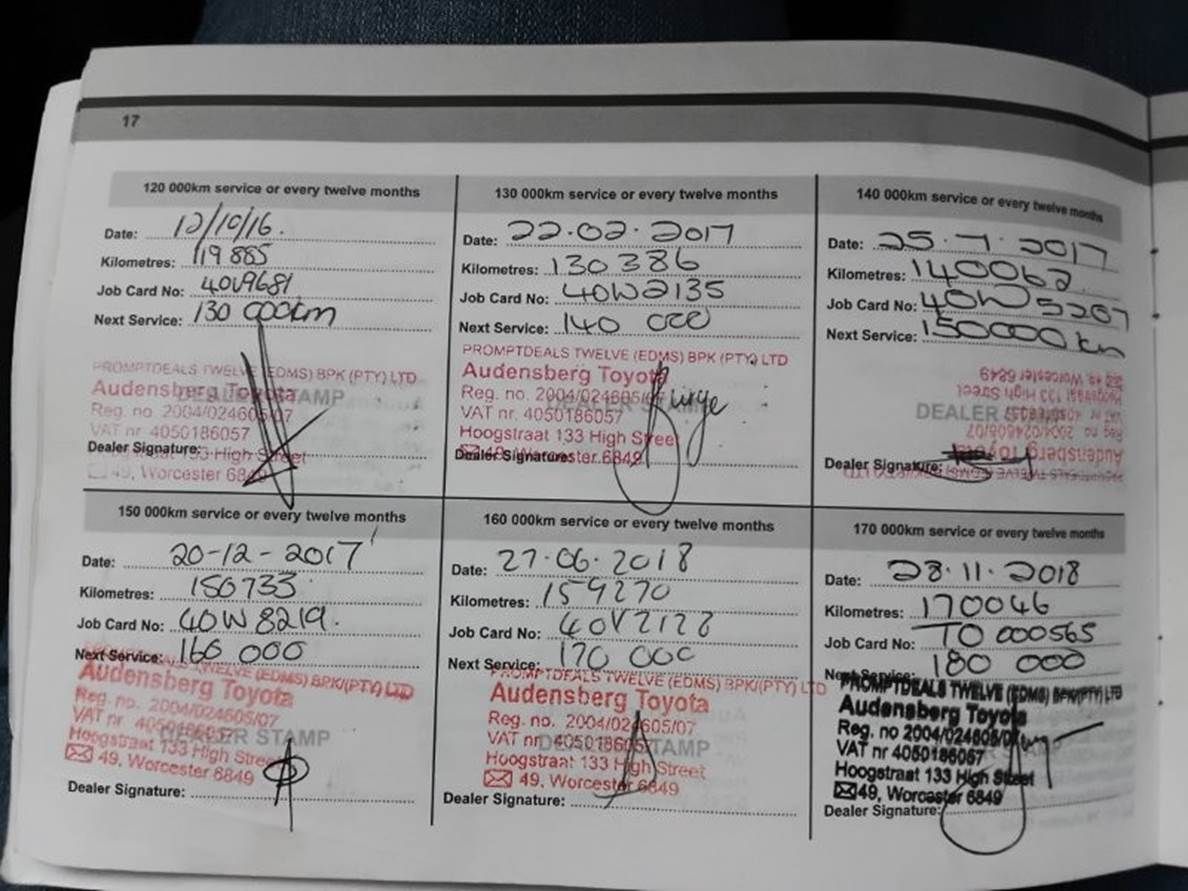 17
120 000km service or every twelve months
Date: 12/10/16.
Kilometres: 119 885
Job Card No: 40V9681
Next Service: 130 000km
PROMPTDEALS TWELVE (EDMS) BPK (PTY) LTD
Audensberg Toyota
DEALER STAMP
Reg. no. 2004/024605/07
VAT nr 4050186057
Hoogstraat 133 High Street
Dealer Signature:
49, Worcester 6849
130 000km service or every twelve months
Date: 22.02.2017
Kilometres: 130386
Job Card No: 40W2135
Next Service: 140 000
PROMPTDEALS TWELVE (EDMS) BPK (PTY) LTD
Audensberg Toyota
Reg. no. 2004/024605/07
DEALER STAMP
VAT nr. 4050186057
Hoogstraat 133 High Street
49, Worcester 6849
Dealer Signature:
140 000km service or every twelve months
Date: 25.7.2017
Kilometres: 140062
Job Card No: 40W5207
Next Service: 150000km
49, Worcester 6849
Hoogstraat 133 High Street
DEALER STAMP
VAT nr 4050186057
Reg no. 2004/024605/07
Audensberg Toyota
Dealer Signature:
PROMPTDEALS TWELVE (EDMS) BPK (PTY) LTD
150 000km service or every twelve months
Date: 20-12-2017
Kilometres: 150733
Job Card No: 40W8219.
Next Service: 160 000
PROMPTDEALS TWELVE (EDMS) BPK/(PTY) LTD
Audensberg Toyota
Reg. no. 2004/024605/07
VAT nr 4050186057
DEALER STAMP
Hoogstraat 133 High Street
49, Worcester 6849
Dealer Signature:
160 000km service or every twelve months
Date: 27.06.2018
Kilometres: 159270
Job Card No: 40V2122
Next Service: 170 000
PROMPTDEALS TWELVE (EDMS) BPK/(PTY) LTD
Audensberg Toyota
Reg. no. 2004/024605/07
VAT nr 4050186057
DEALER STAMP
Hoogstraat 133 High Street
49, Worcester 6849
Dealer Signature:
170 000km service or every twelve months
Date: 28.11.2018
Kilometres: 170046
Job Card No: TO 000565
Next Service: 180 000
PROMPTDEALS TWELVE (EDMS) BPK/(PTY) LTD
Audensberg Toyota
Reg. no 2004/024605/07
VAT nr 4050186057
STAMP
Hoogstraat 133 High Street
49, Worcester 6849
Dealer Signature: